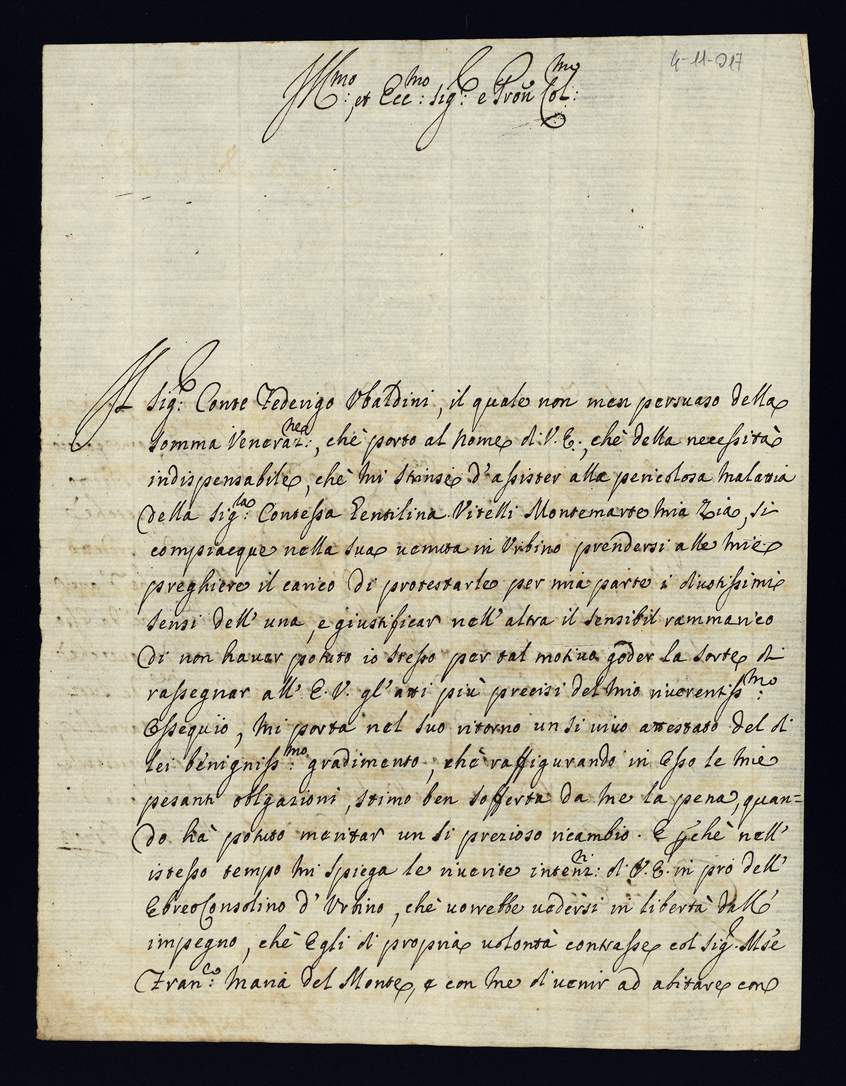 4-11-917
Ill:mo et Ecc:mo Sig:e e Pron Col:mo
Il Sig:e Conte Federigo Ubaldini, il quale non men persuaso della
somma Veneraz:nea, chè porto al nome di V. E., chè della necessità
indispensabile, chè mi strinse d'assister alla pericolosa malatia
della Sig:ra Contessa Gentilina Vitelli Montemarte mia Zia, si
compiacque nella sua venuta in Urbino prendersi alle mie
preghiere il carico di protestarle per mia parte i divotissimi
sensi dell' una, e giustificar nell' altra il sensibil rammarico
di non haver potuto io stesso per tal motivo goder la sorte di
rassegnar all' E. V. gl' atti più precisi del mio riverentiss:mo
Ossequio, mi porta nel suo ritorno un sì vivo attestato del di
lei benigniss:mo gradimento, chè raffigurando in Esso le mie
pesanti obligazioni, stimo ben sofferta da me la pena, quan=
do hà potuto meritar un sì prezioso ricambio. E perchè nell'
istesso tempo mi spiega le riverite intenz:ni di V. E. in prò dell'
Ebreo Consolino d' Urbino, chè vorrebbe vedersi in libertà dall'
impegno, chè Egli di propria volontà contrasse col Sig:e Mse
Fran:co Maria del Monte, e con me di venir ad abitare con